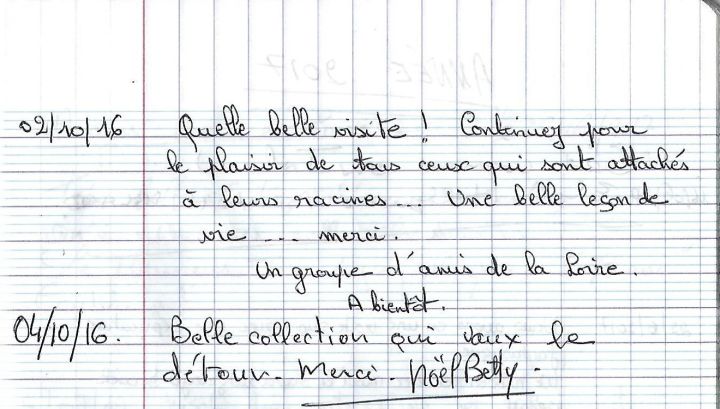 02/10/16 Quelle belle visite ! Continuez pour
le plaisir de tous ceux qui sont attachés
à leurs racines... Une belle leçon de
vie ... merci.
Un groupe d'amis de la Loire.
A bientôt.
04/10/16. Belle collection qui vaux le
détour. Merci. Noël Betty.
ANNÉE 2017